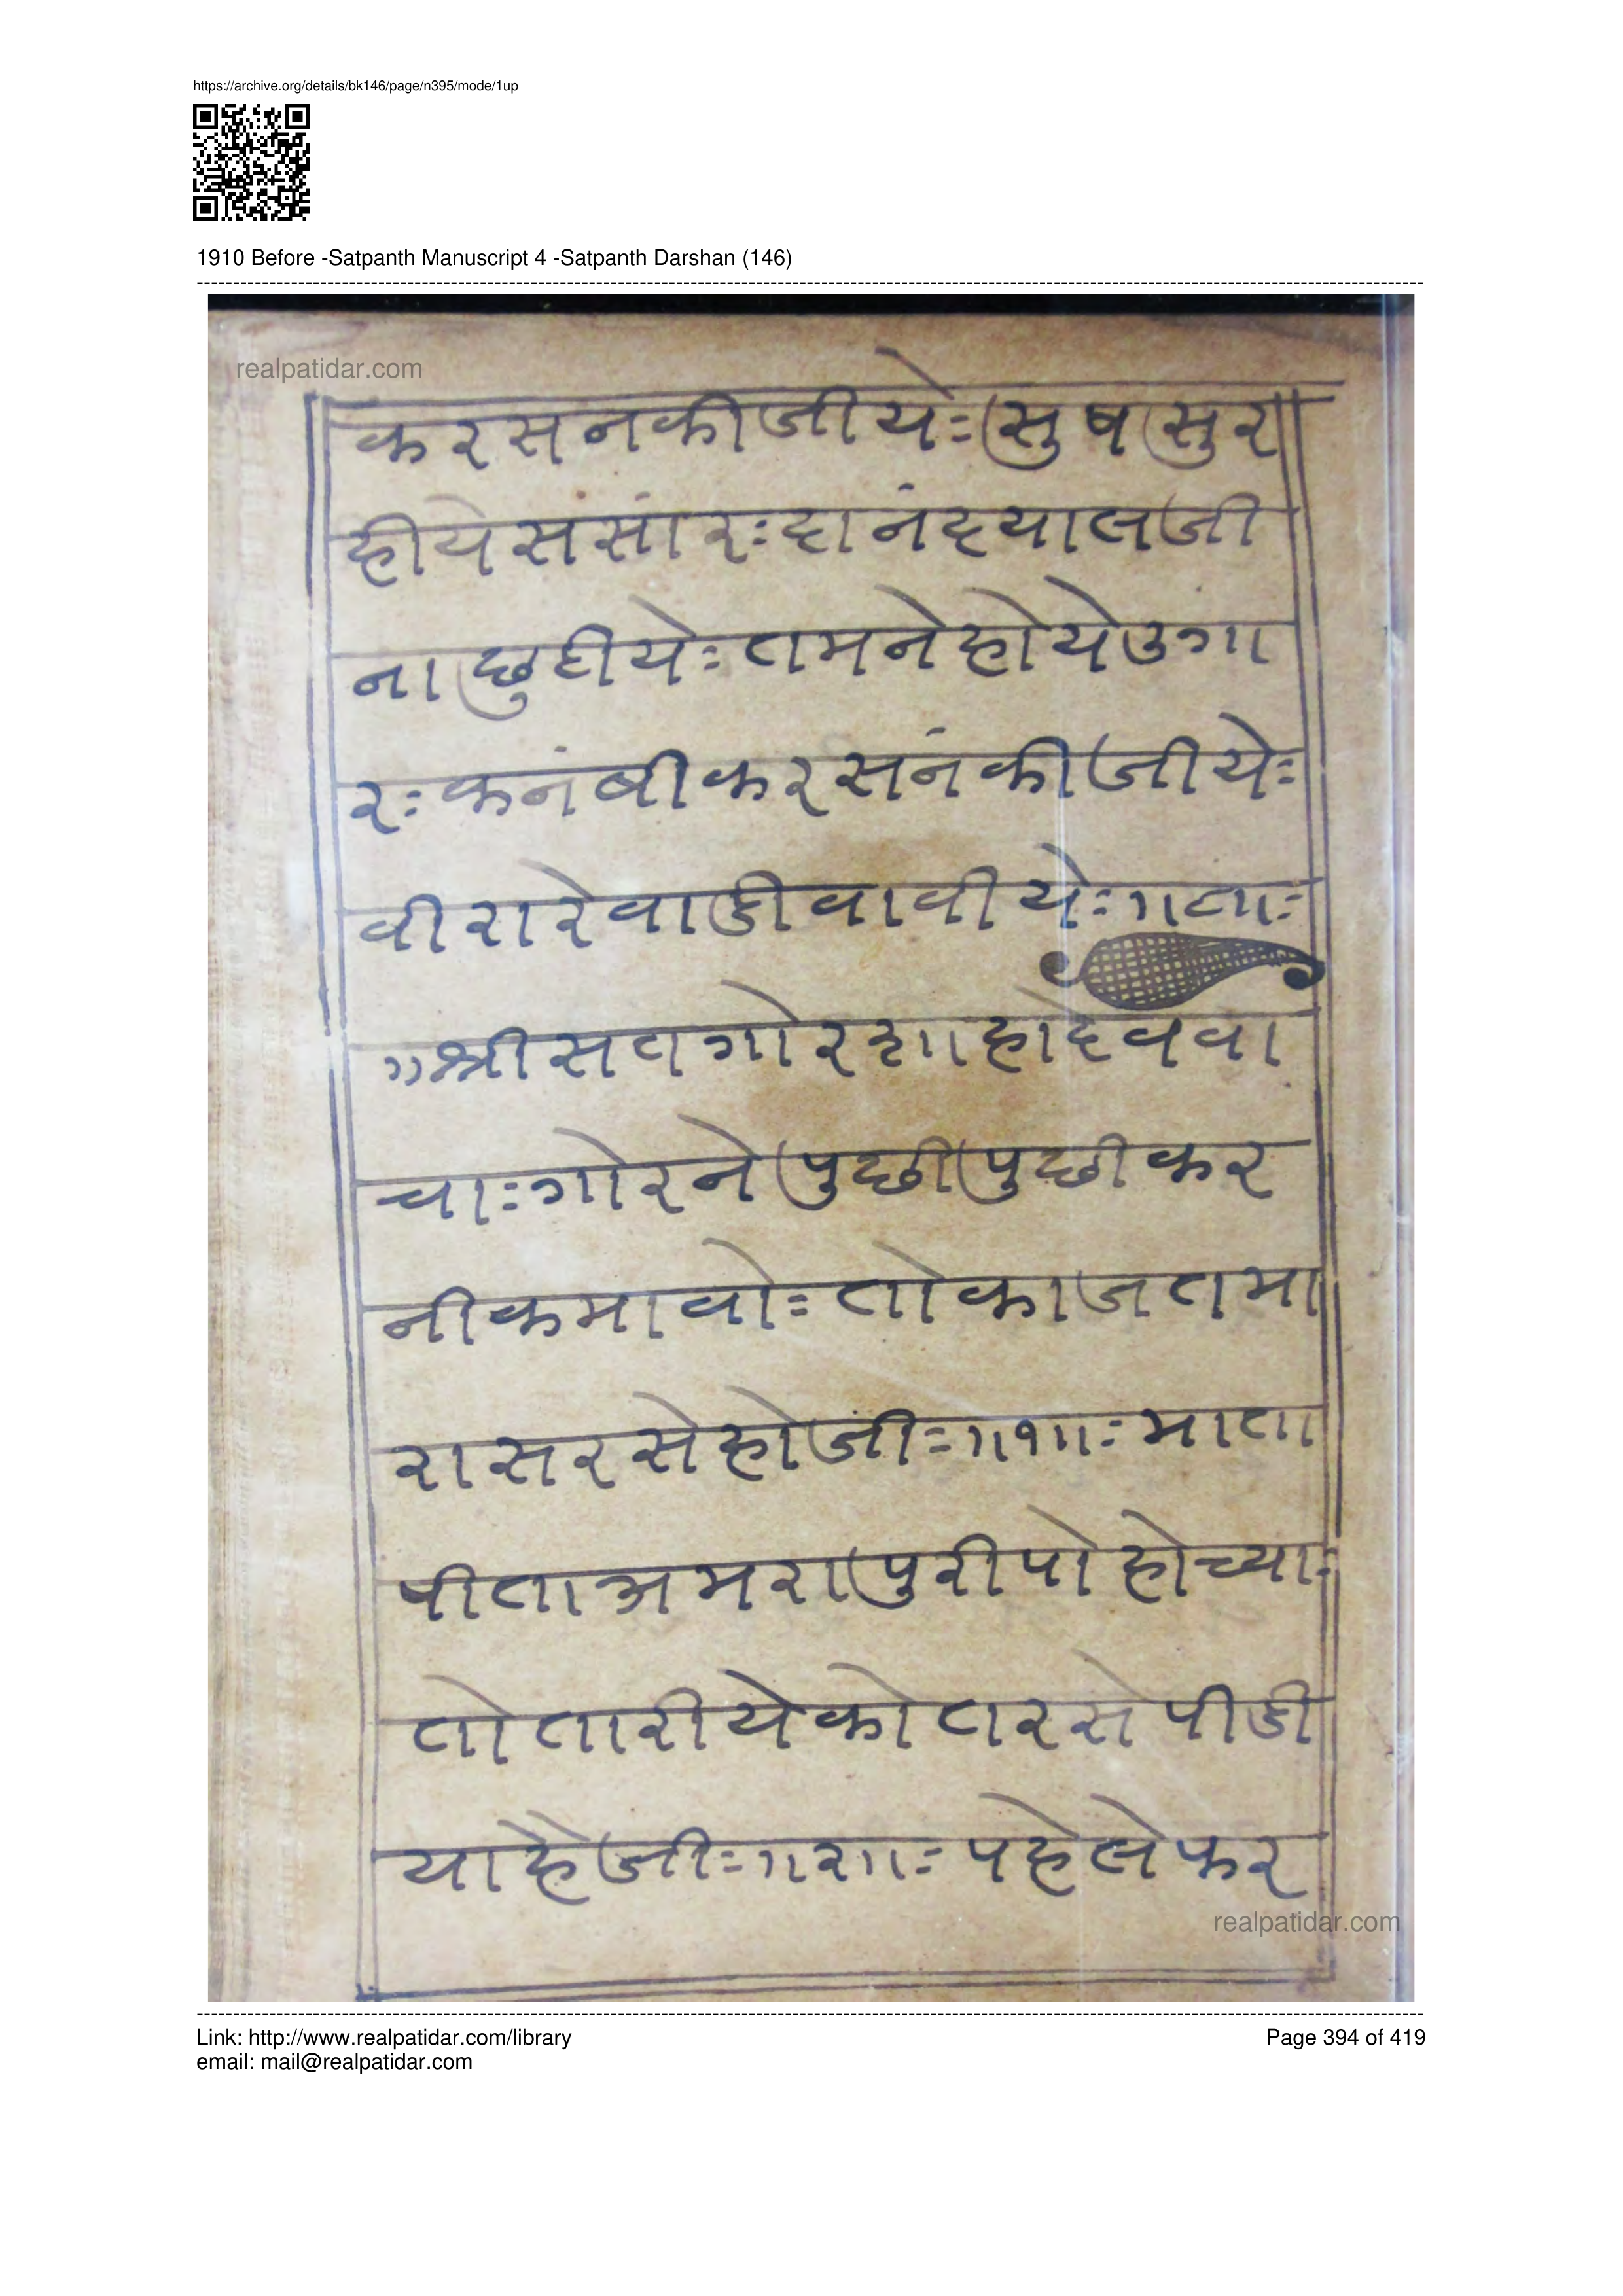 https://archive.org/details/bk146/page/n395/mode/1up
1910 Before -Satpanth Manuscript 4 -Satpanth Darshan (146)
realpatidar.com
करसनकीजीयेः सुषसुर
हीयेसंसांरः दांनंदयालजी
नाछुटीयेः तमनेहोयेउगा
रः कनंबीकरसंनंकीजीयेः
वीरारेवाडीवावीयेः
॥श्रीसतगोरशाहादेववा
चाः गोरनेपुछीपुछीकर
नीकमावोः तोकाजतमा
रासरसेहोजीः ॥१॥ः माता
पीताअमरापुरीपोहोच्याः
तोतारीयेकोतरसेपीडी
याहैजीः ॥२॥ः पहेलेफर
realpatidar.com
Link: http://www.realpatidar.com/library
email: mail@realpatidar.com
Page 394 of 419